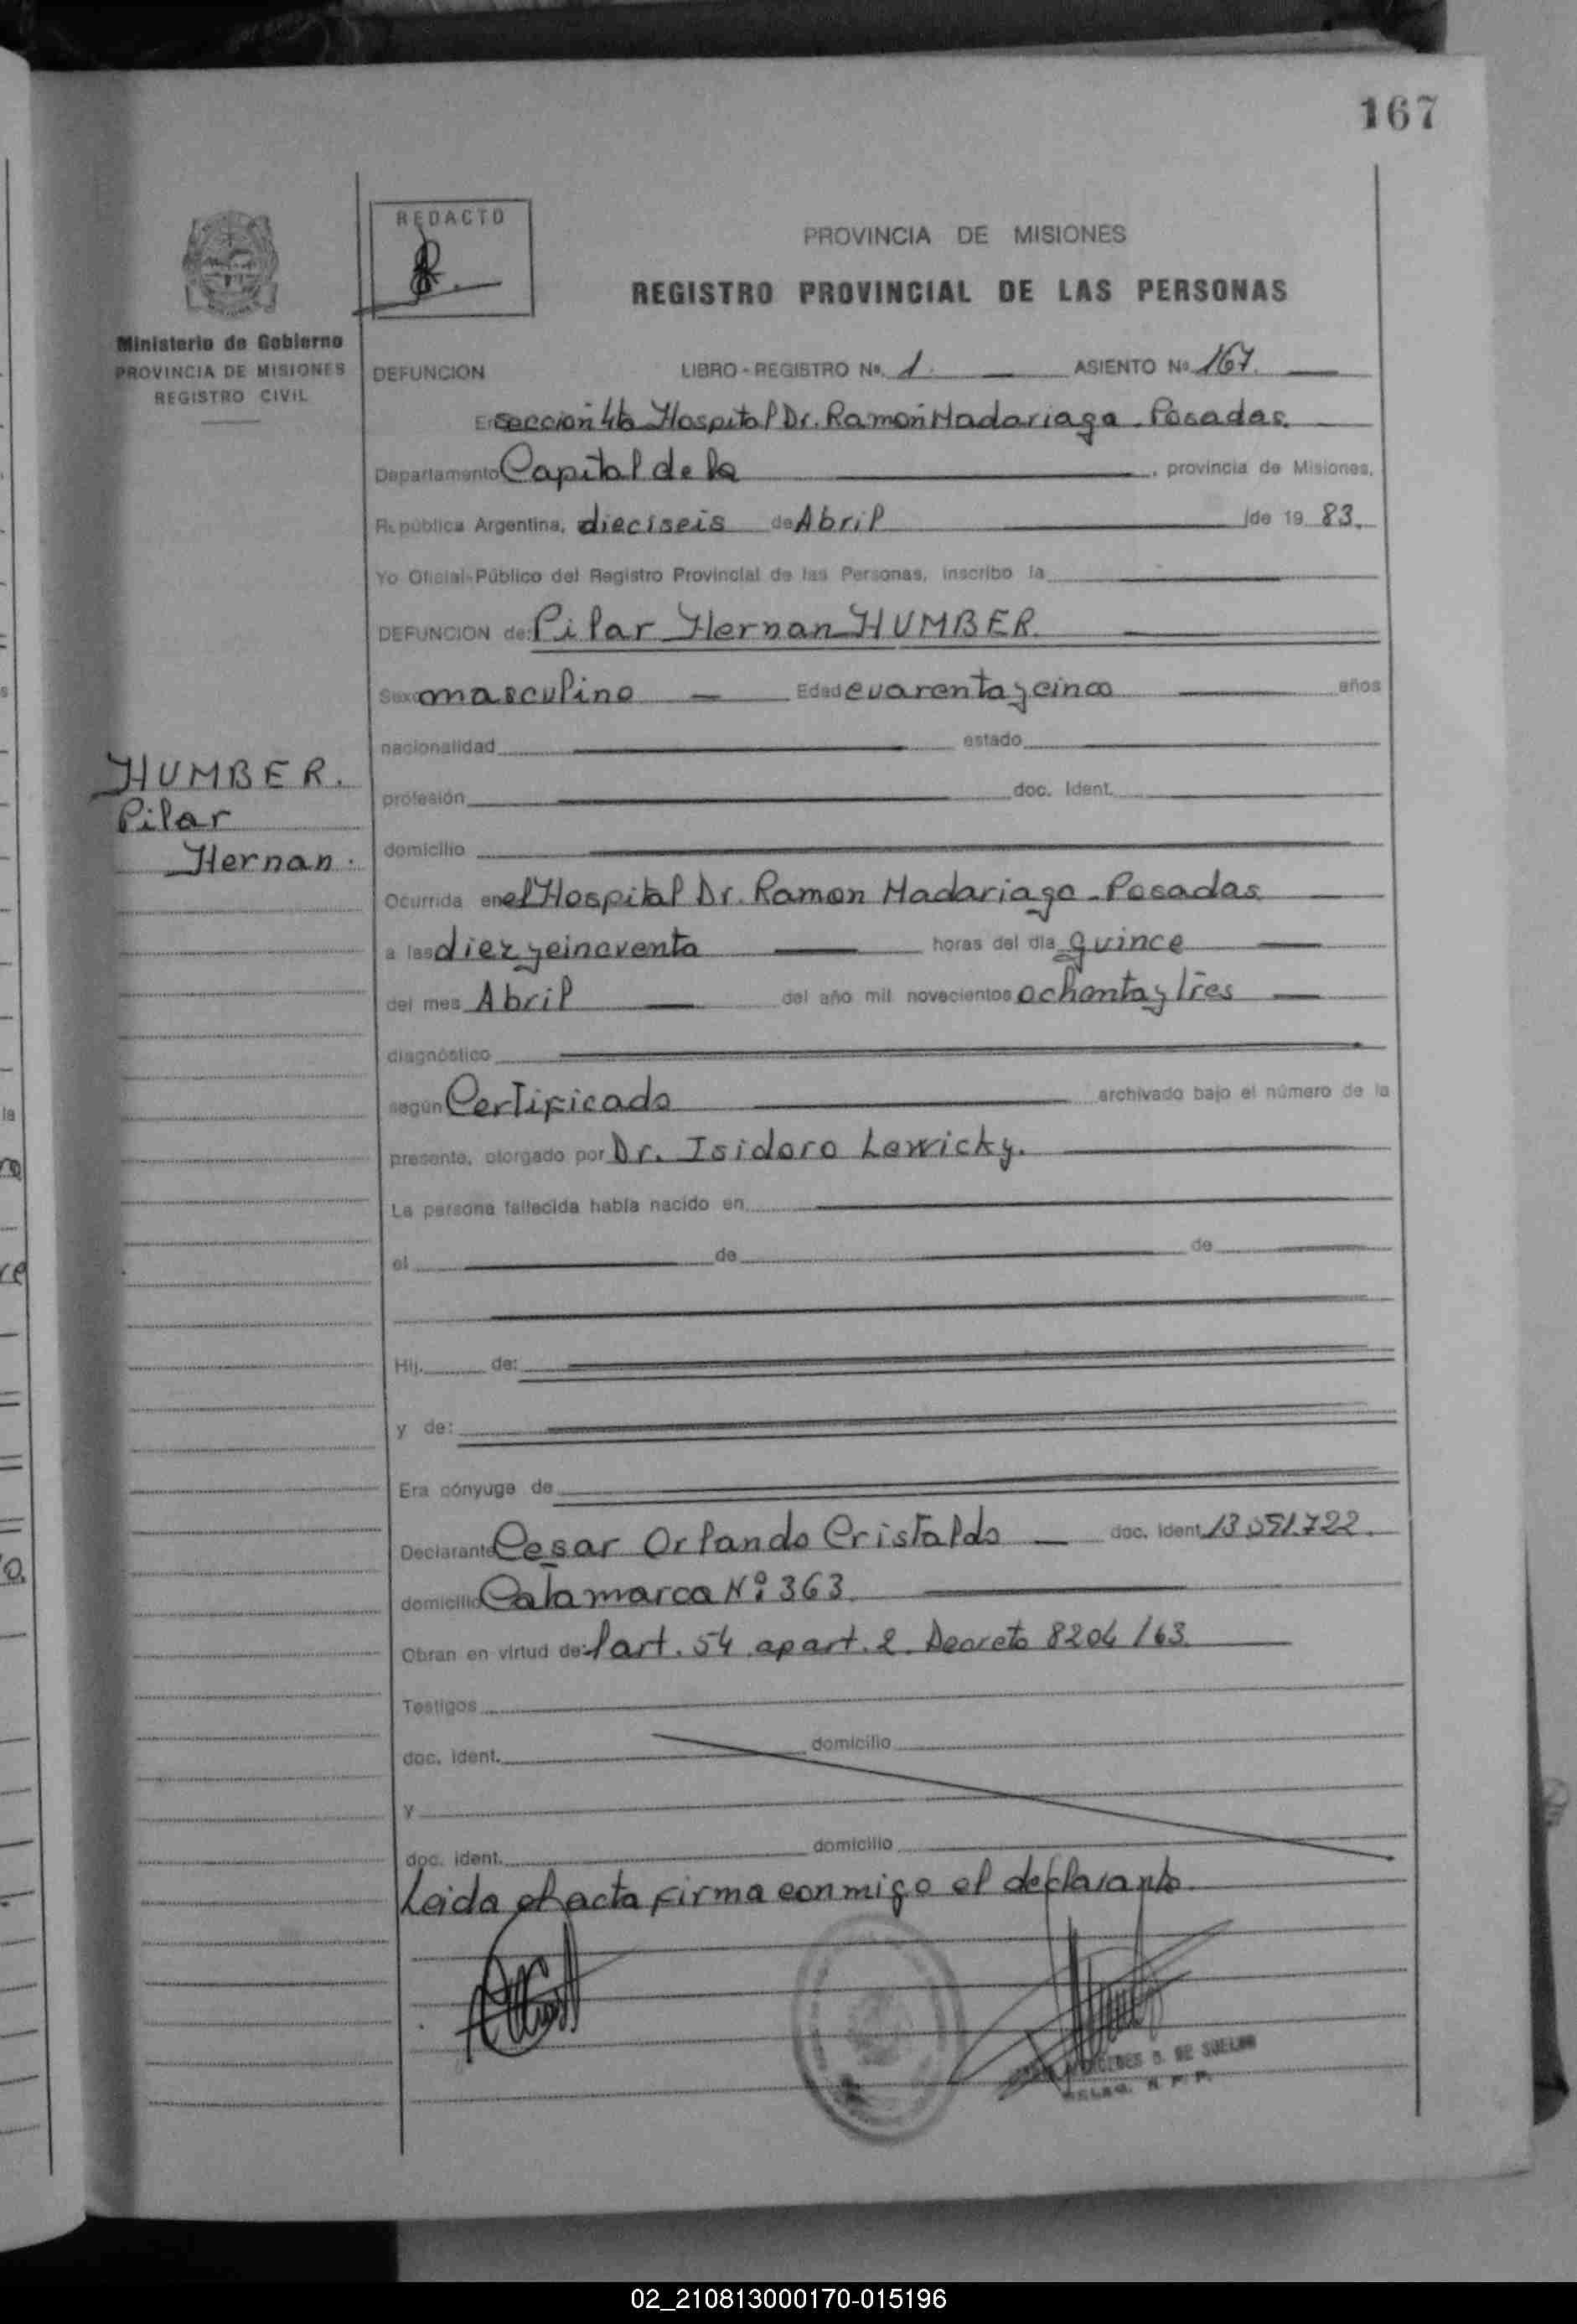 167
REDACTO
PROVINCIA DE MISIONES
REGISTRO PROVINCIAL DE LAS PERSONAS
Ministerio de Gobierno
PROVINCIA DE MISIONES
REGISTRO CIVIL
DEFUNCION LIBRO - REGISTRO Nº. 1. ASIENTO Nº 167.
En Sección 4ta Hospital Dr. Ramón Madariaga - Posadas.
Departamento Capital de la , provincia de Misiones,
República Argentina, dieciseis de Abril de 19 83.
Yo Oficial-Público del Registro Provincial de las Personas, inscribo la
DEFUNCION de: Pilar Hernan HUMBER.
Sexo masculino Edad cuarenta y cinco años
nacionalidad estado
HUMBER.
Pilar
Hernan.
profesión doc. Ident.
domicilio
Ocurrida en el Hospital Dr. Ramon Madariaga - Posadas
a las diez y cincuenta horas del día quince
del mes Abril del año mil novecientos ochenta y tres
diagnóstico
según Certificado archivado bajo el número de la
presente, otorgado por Dr. Isidoro Lewicky.
La persona fallecida había nacido en
el de de
Hij. de:
y de:
Era cónyuge de
Declarante Cesar Orlando Cristaldo doc. Ident. 13.051.722.
domicilio Catamarca Nº 363.
Obran en virtud de: l art. 54 apart. 2. Decreto 8204/63.
Testigos
doc. ident. domicilio
y
doc. ident. domicilio
Leida el acta firma conmigo el declarante
DE SUELDO
R. P. P.
02_210813000170-015196